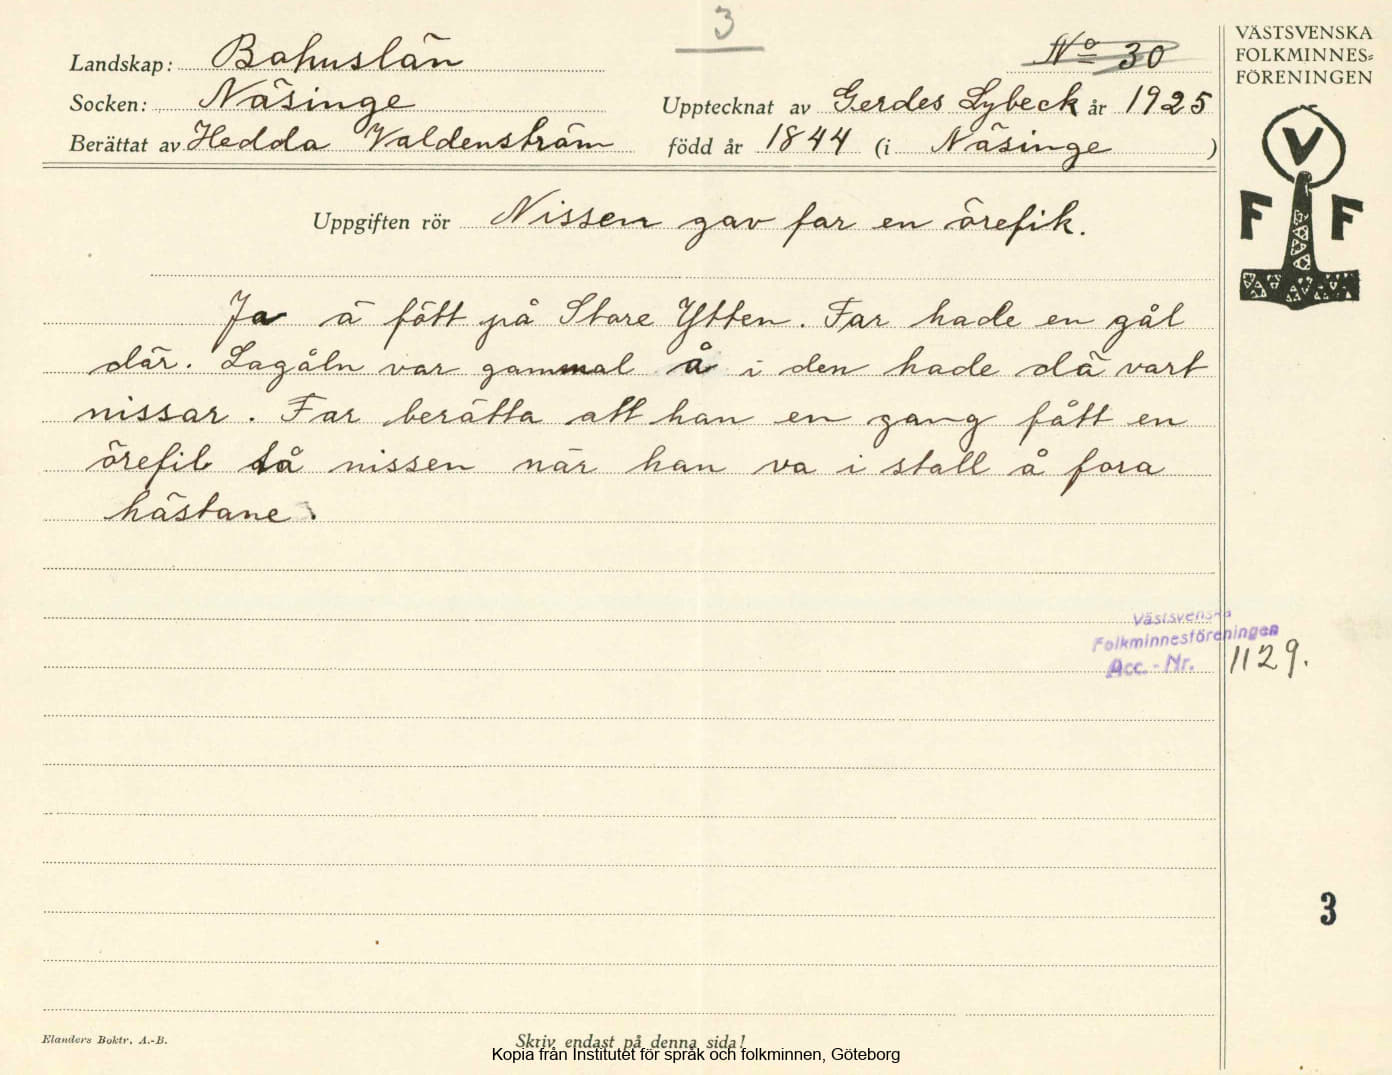 3
Landskap: Bohuslän
No 30
VÄSTSVENSKA
FOLKMINNES=
FÖRENINGEN
Socken: Näsinge
Upptecknat av Gerdes Lybeck år 1925
Berättat av Hedda Valdenström
född år 1844 (i Näsinge )
V
F F
Uppgiften rör Nissen gav far en örefik.
Ja ä fött på Store Ytten. Far hade en gål
där. Lagåln var gammal å i den hade dä vart
nissar. Far berätta att han en gang fått en
örefil tå nissen när han va i stall å fora
hästane.
Västsvenska
Folkminnesföreningen
Acc.-Nr. 1129.
3
Elanders Boktr. A.-B.
Skriv endast på denna sida!
Kopia från Institutet för språk och folkminnen, Göteborg